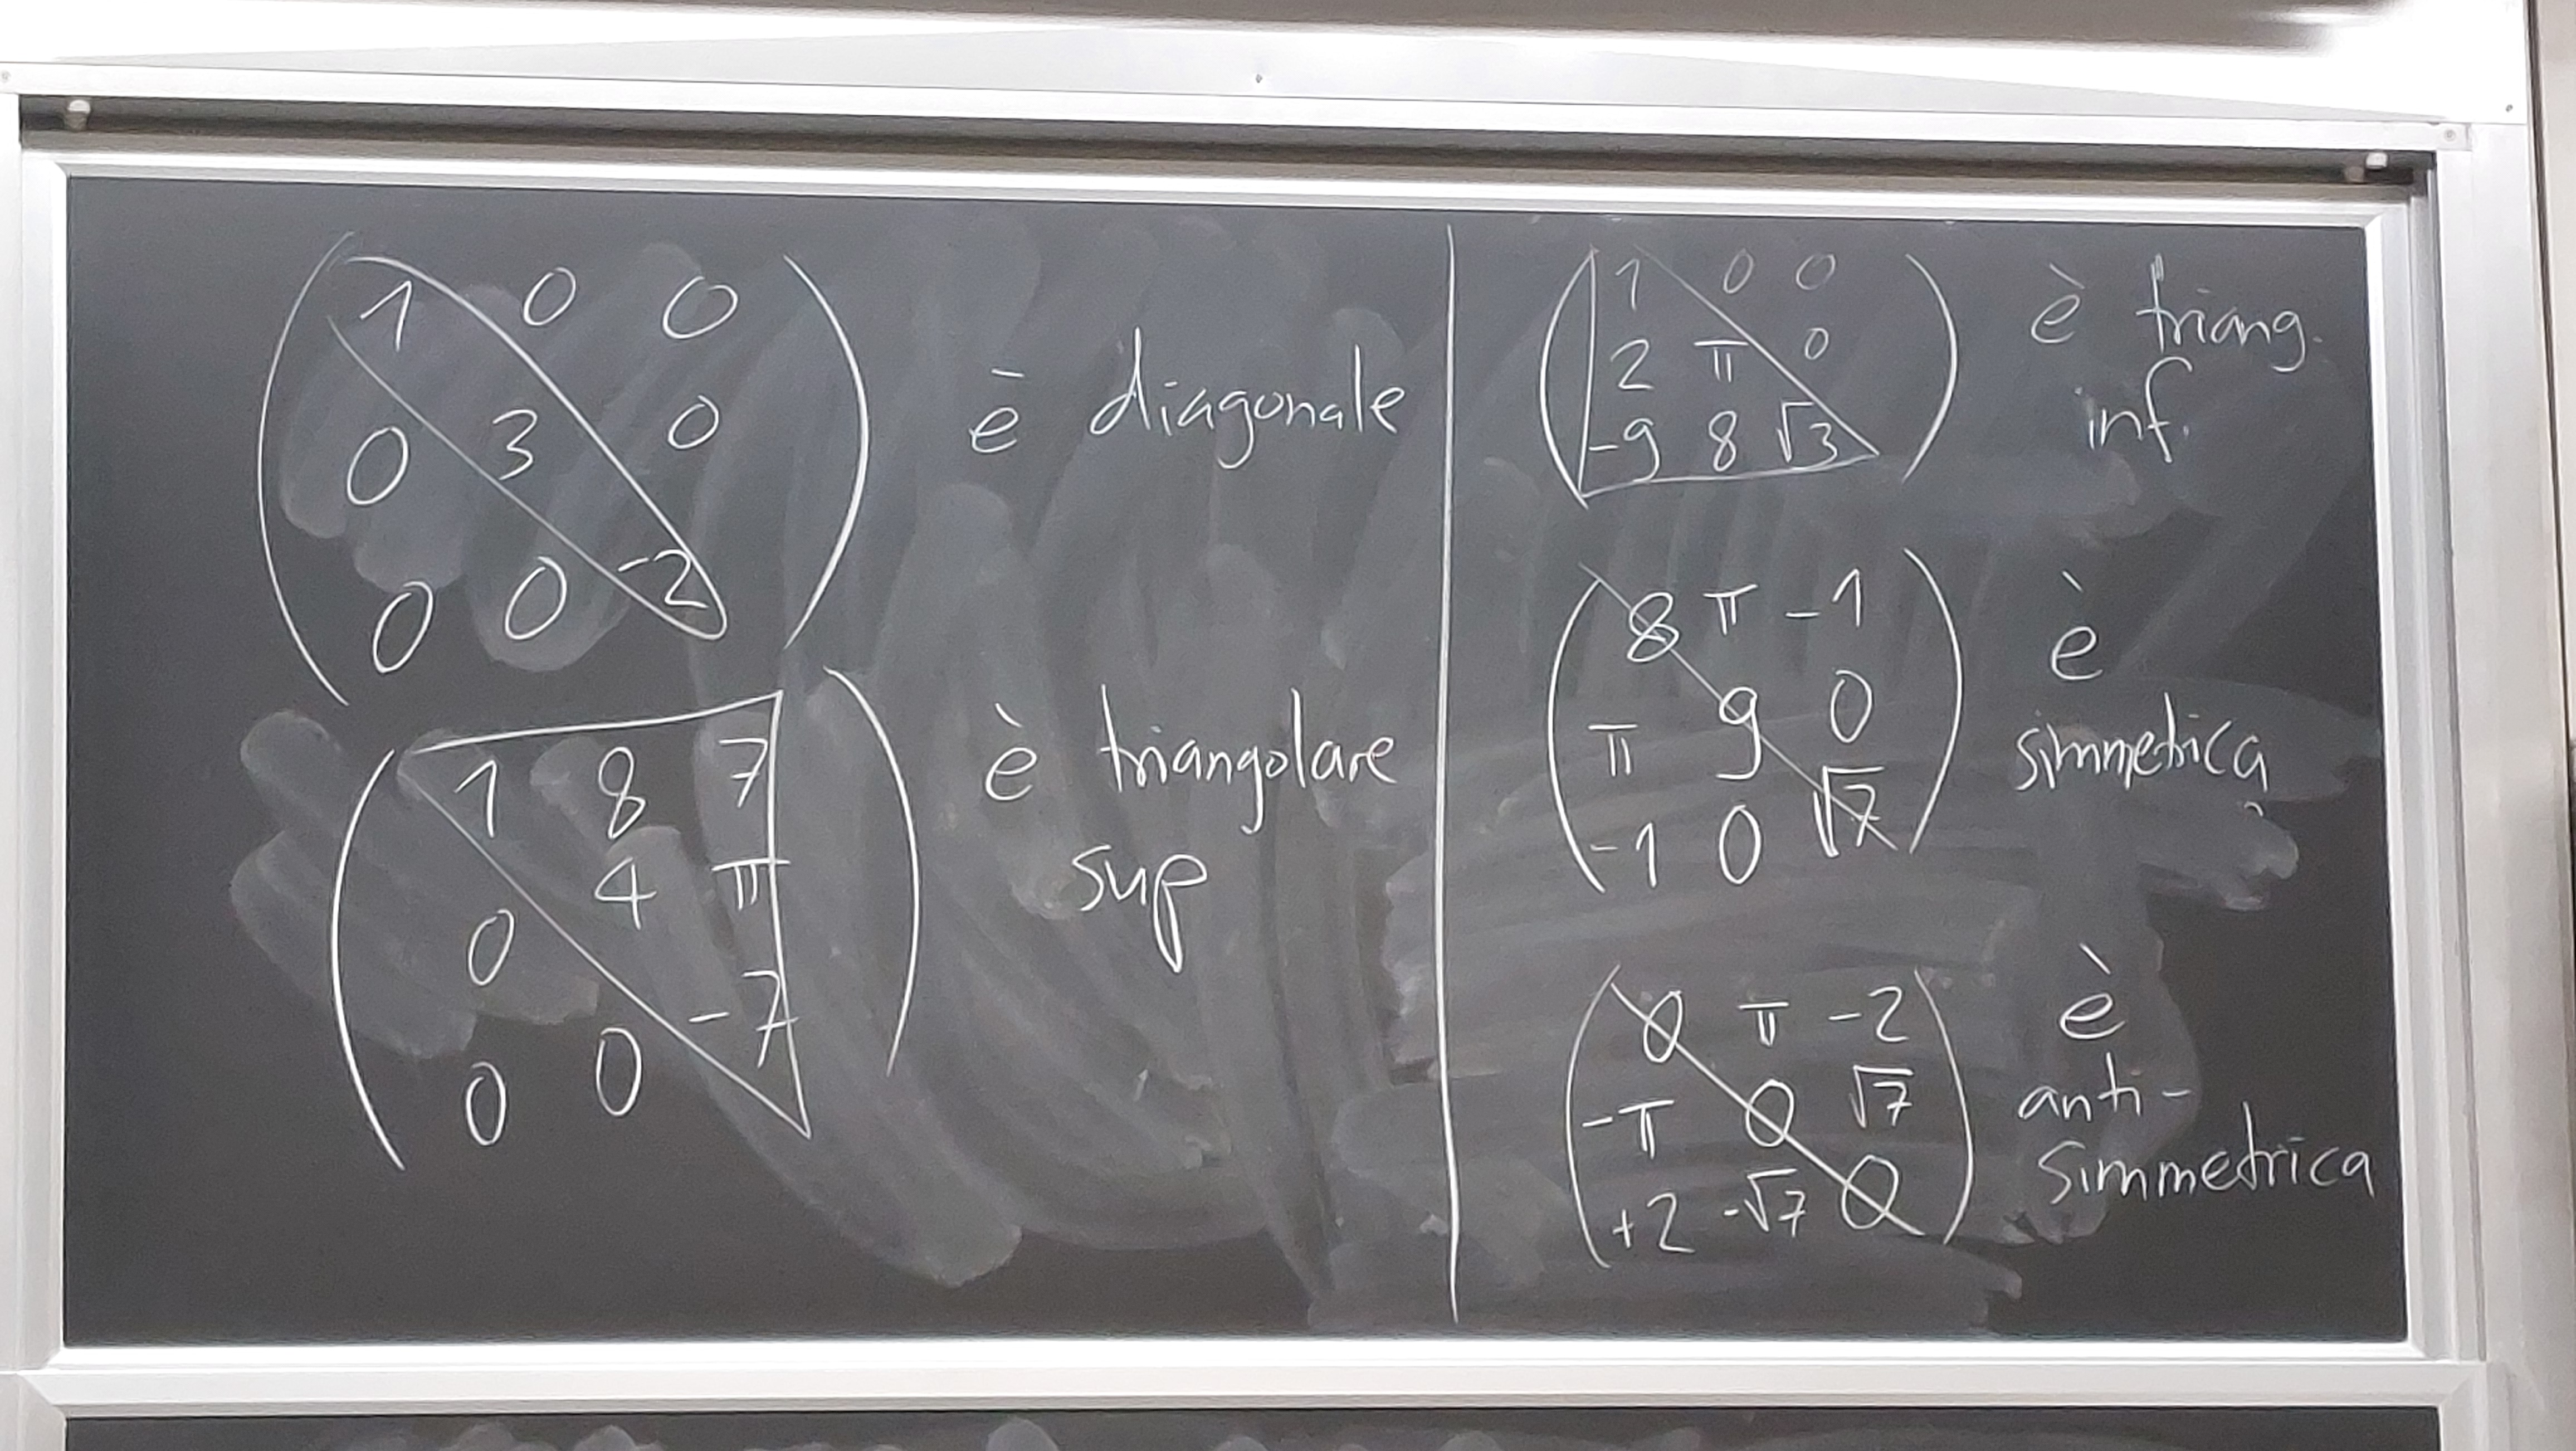 1 0 0
0 3 0
0 0 -2
è diagonale
1 8 7
0 4 π
0 0 -7
è triangolare
sup
1 0 0
2 π 0
-9 8 √3
è triang.
inf.
8 π -1
π 9 0
-1 0 √7
è
simmetrica
0 π -2
-π 0 √7
+2 -√7 0
è
anti-
simmetrica